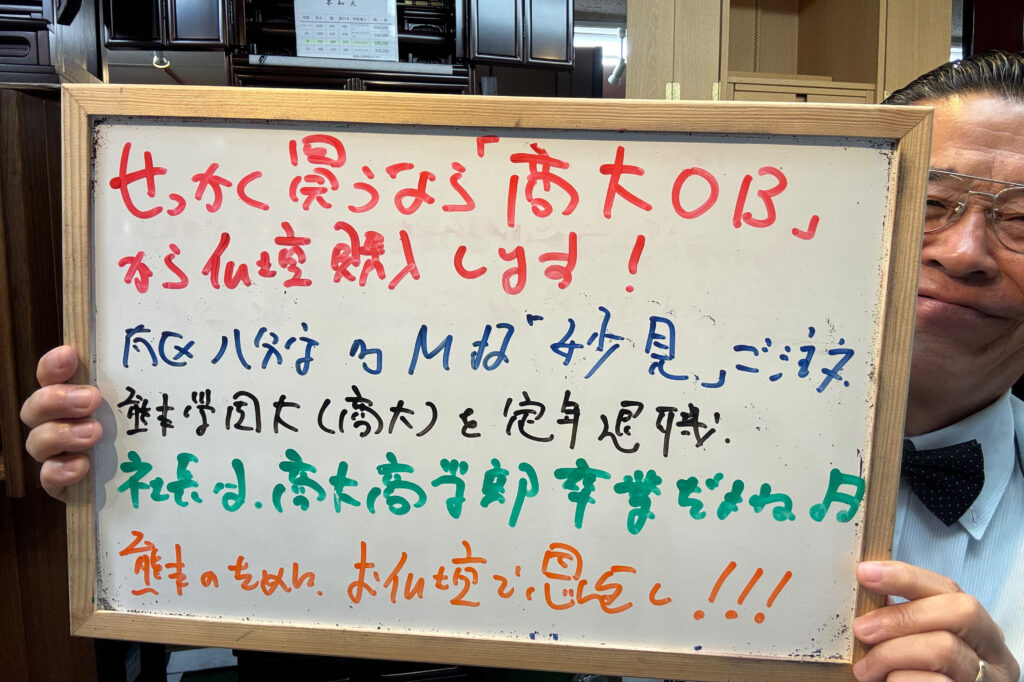 不知火
せっかく買うなら「商大OB」
から仏壇購入します！
南区八分字のM様「妙見」ご注文
熊本学園大(商大)を定年退職.
社長は、商大商学部卒業だよね
熊本のために、お仏壇で恩返し!!!